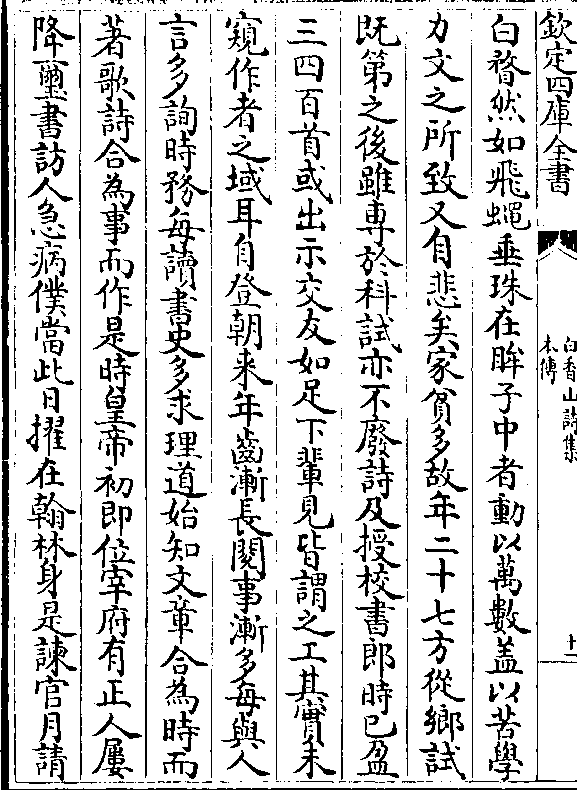 欽定四庫全書
白香山詩集
本傳
十一
白瞀然如飛蠅垂珠在眸子中者動以萬數盖以苦學
力文之所致又自悲矣家貧多故年二十七方從鄉試
既第之後雖專於科試亦不廢詩及授校書郎時已盈
三四百首或出示交友如足下輩見皆謂之工其實未
窺作者之域耳自登朝来年齒漸長閱事漸多每與人
言多詢時務每讀書史多求理道始知文章合為時而
著歌詩合為事而作是時皇帝初即位宰府有正人屢
降璽書訪人急病僕當此日擢在翰林身是諫官月請